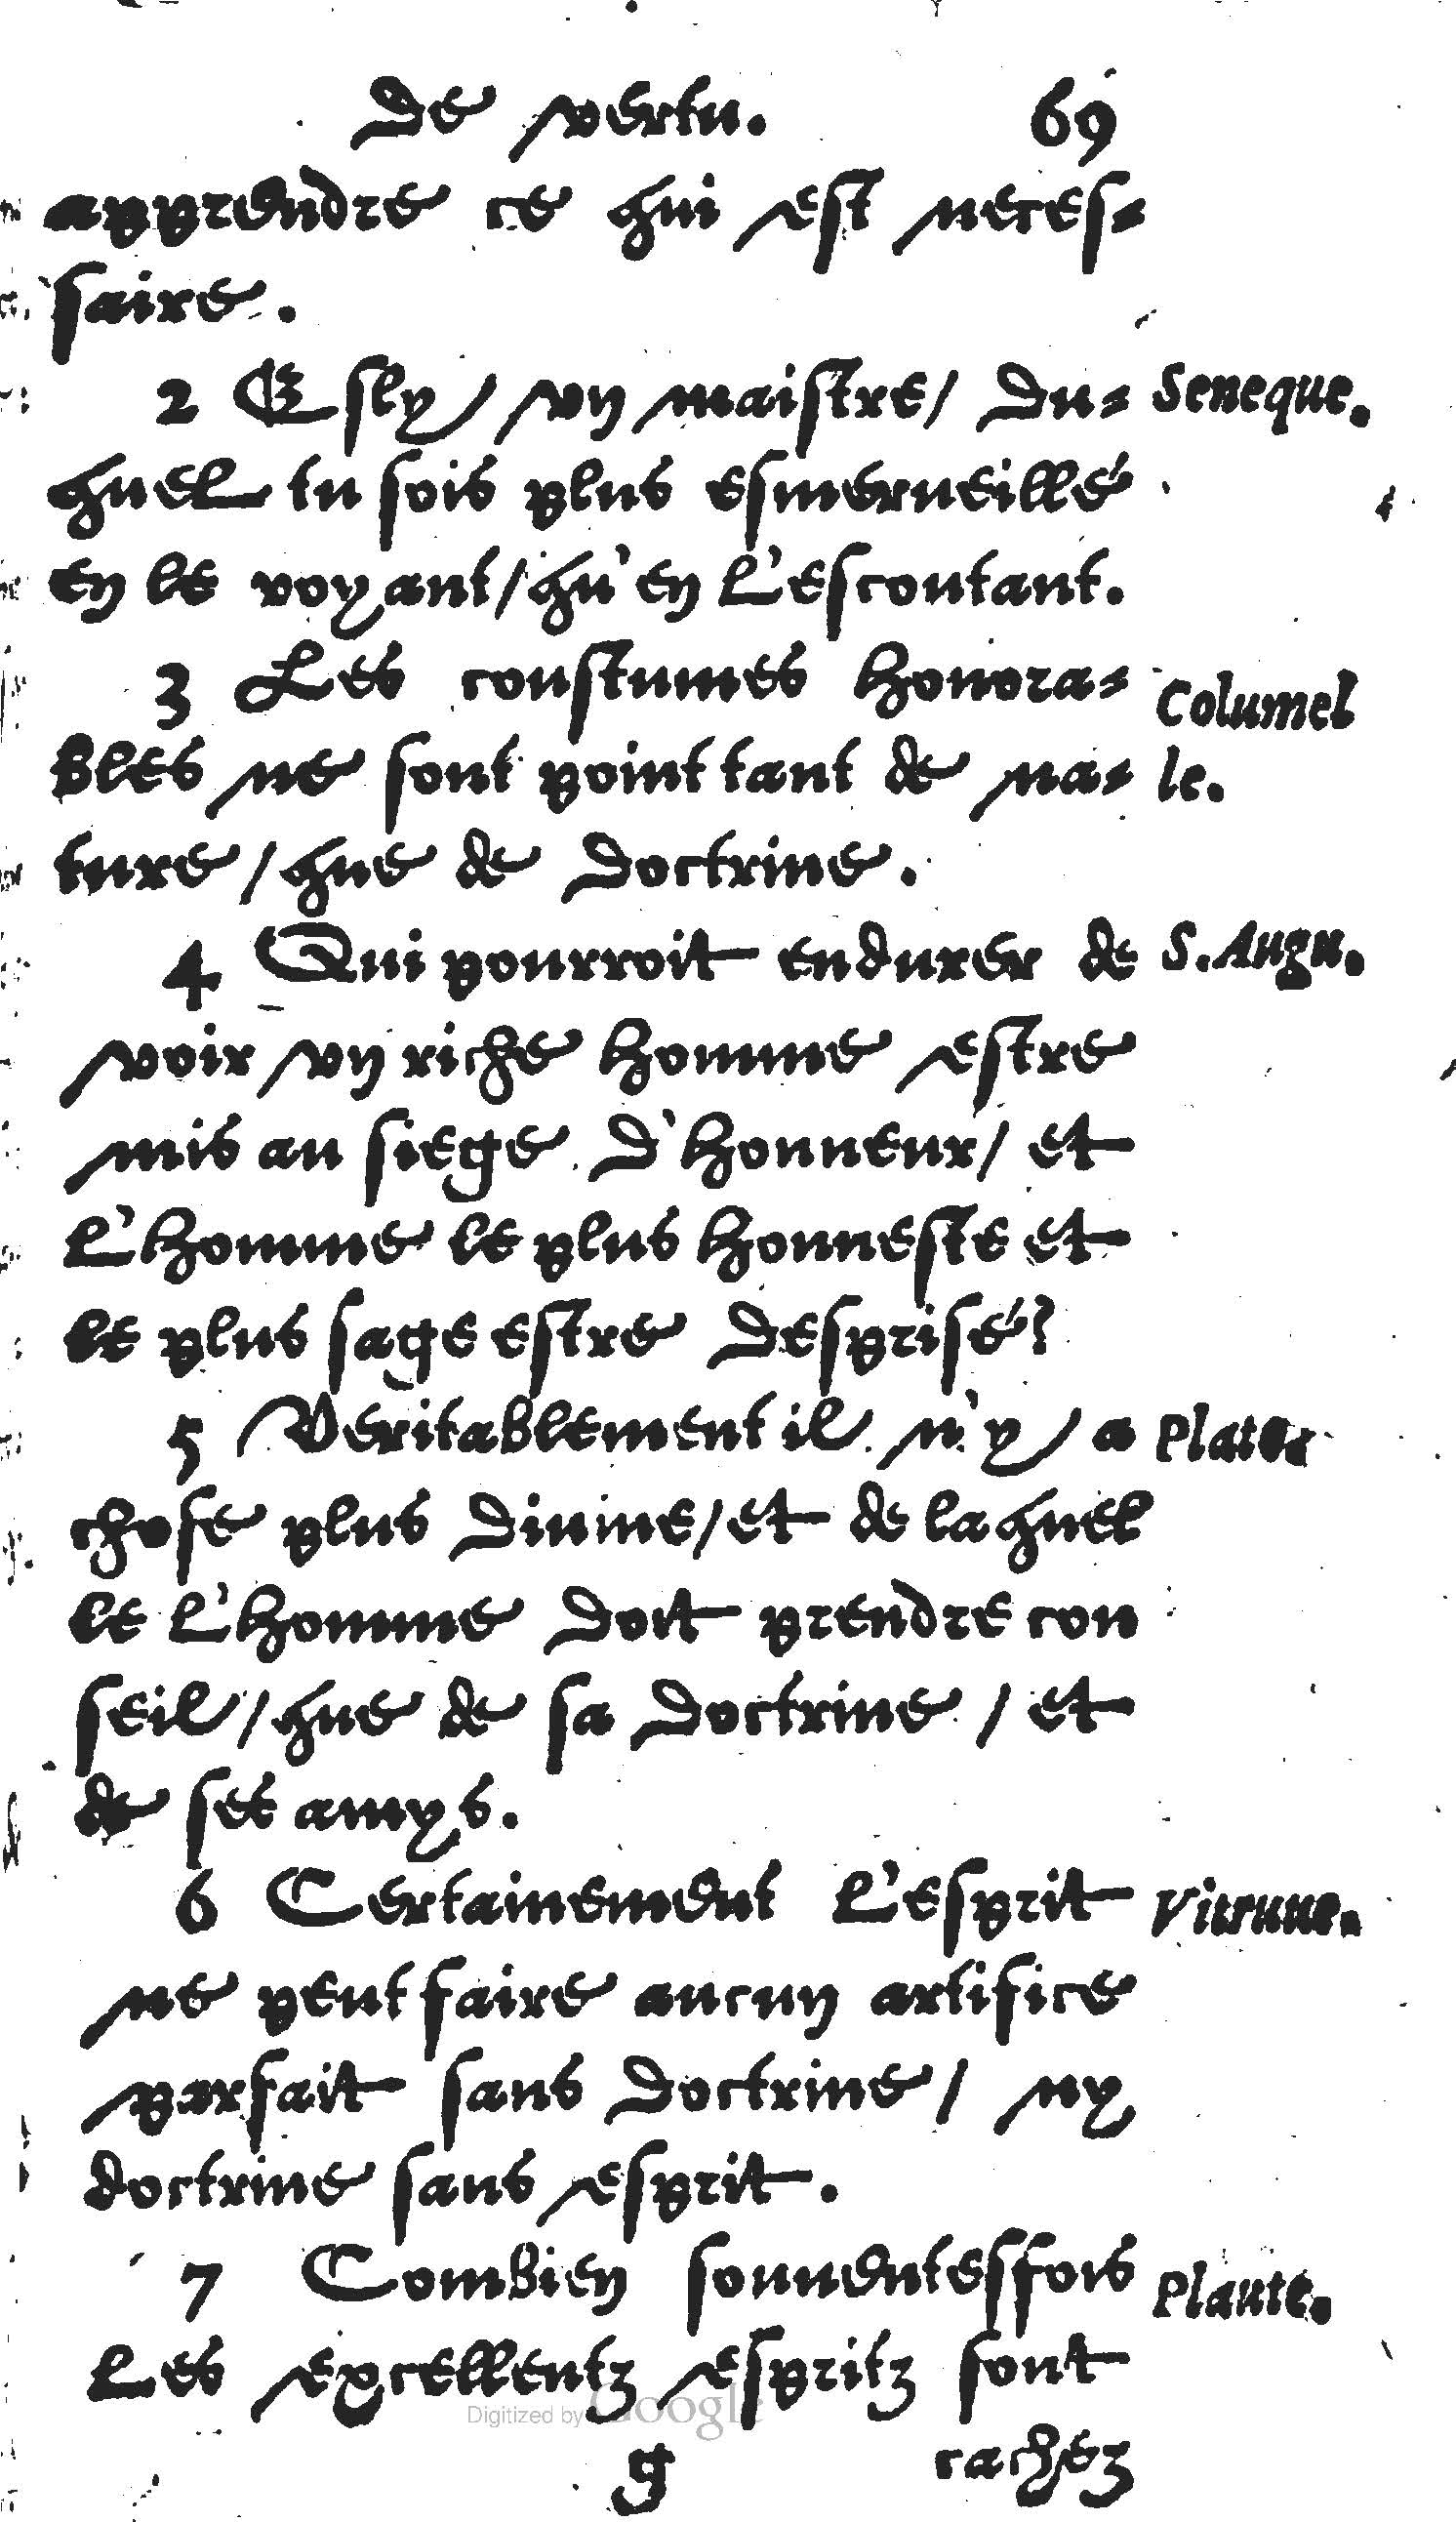 De vertu. 69
apprendre ce qui est neces-
saire.
2 Esly vn maistre/ du- Seneque.
quel tu sois plus esmerueillé
en le voyant/qu'en l'escoutant.
3 Les coustumes honora- Columel
bles ne sont point tant de na- le.
ture/que de doctrine.
4 Qui pourroit endurer de S. Augu.
voir vn riche homme estre
mis au siege d'honneur/ et
l'homme le plus honneste et
le plus sage estre desprisé?
5 Veritablement il n'y a Plato.
chose plus diuine/et de laquel
le l'homme doit prendre con
seil/que de sa doctrine/ et
de ses amys.
6 Certainement l'esprit Vitruue.
ne peut faire aucun artifice
parfait sans doctrine/ ny
doctrine sans esprit.
7 Combien souuentesfois Plaute.
les excellentz espritz sont
Digitized by Google
g cachez